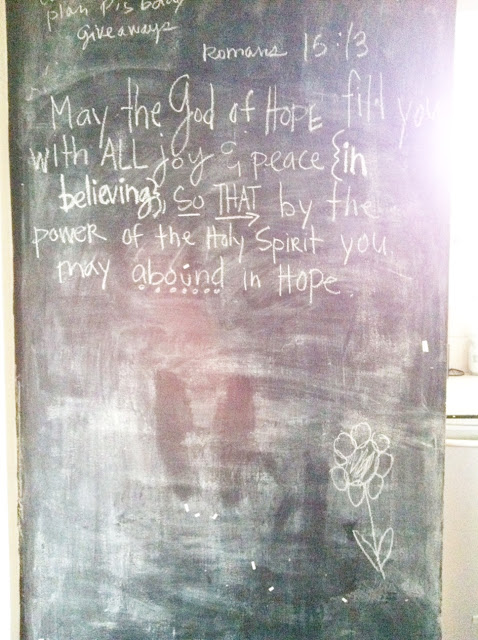 plan P's bday
giveaways
Romans 15:13
May the God of HOPE fill you
with ALL joy & peace {in
believing}, so THAT by the
power of the Holy Spirit you
may abound in Hope.